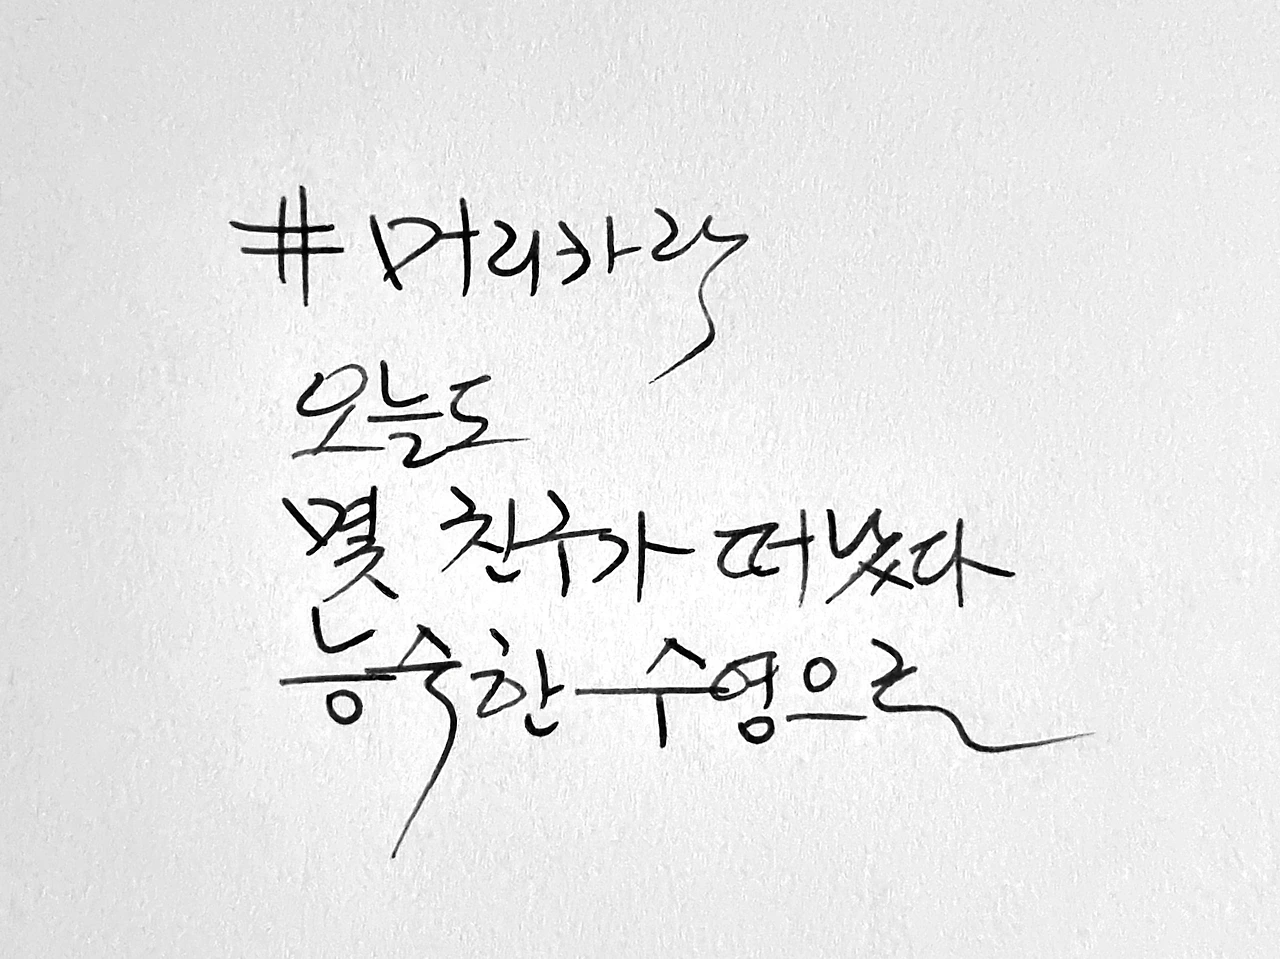 #머리카락
오늘도
몇 친구가 떠났다
능숙한 수영으로